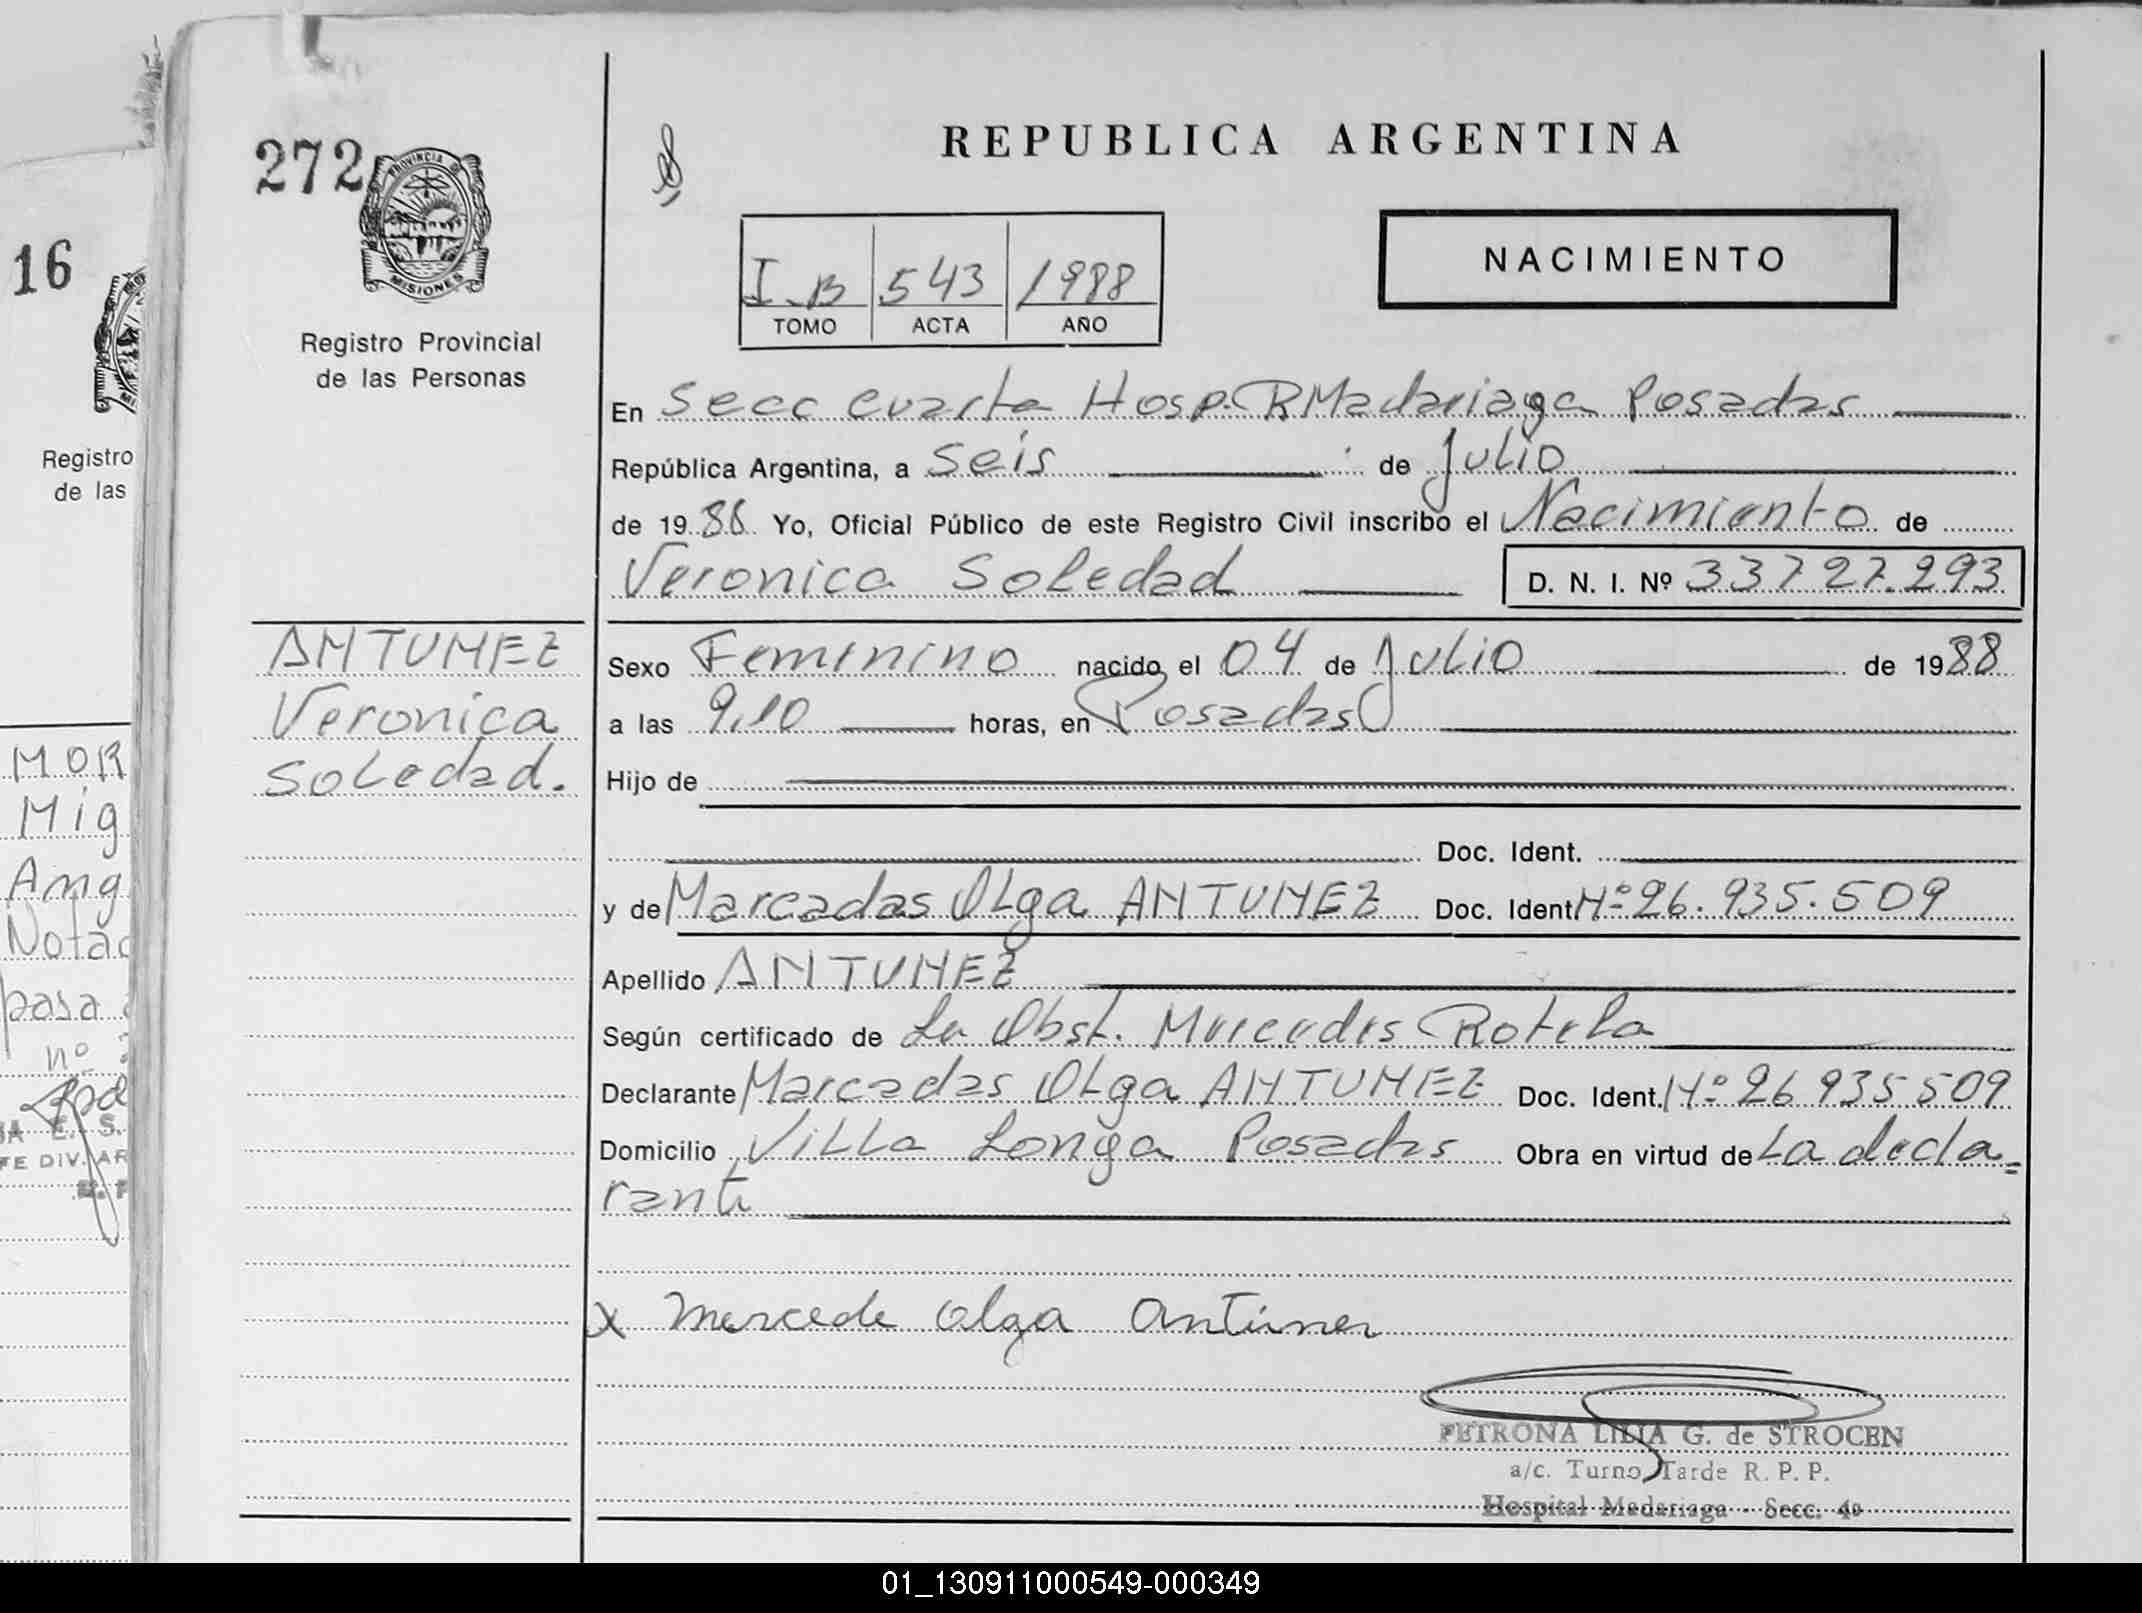 272
PROVINCIA DE
MISIONES
Registro Provincial
de las Personas
REPUBLICA ARGENTINA
NACIMIENTO
I-B 543 1988
TOMO ACTA AÑO
En Secc cuarta Hosp. R Madariaga Posadas
República Argentina, a Seis de Julio
de 1988 Yo, Oficial Público de este Registro Civil inscribo el Nacimiento de
Veronica Soledad D. N. I. Nº 33727.293
ANTUNEZ
Veronica
Soledad.
Sexo Femenino nacido el 04 de Julio de 1988
a las 9,10 horas, en Posadas
Hijo de
Doc. Ident.
y de Marcadas Olga ANTUNEZ Doc. Ident Nº 26.935.509
Apellido ANTUNEZ
Según certificado de La Obst. Mercedes Rotela
Declarante Marcadas Olga ANTUNEZ Doc. Ident. Nº 26 935 509
Domicilio Villa Longa Posadas Obra en virtud de La decla=
rante
x Mercede Olga Antúnez
PETRONA LILIA G. de STROCEN
a/c. Turno Tarde R. P. P.
Hospital Madariaga - Secc. 4a
16
Registro
de las
MOR
Mig
Ang
Nota
pasa
nº
E. S.
FE DIV. AR
01_130911000549-000349